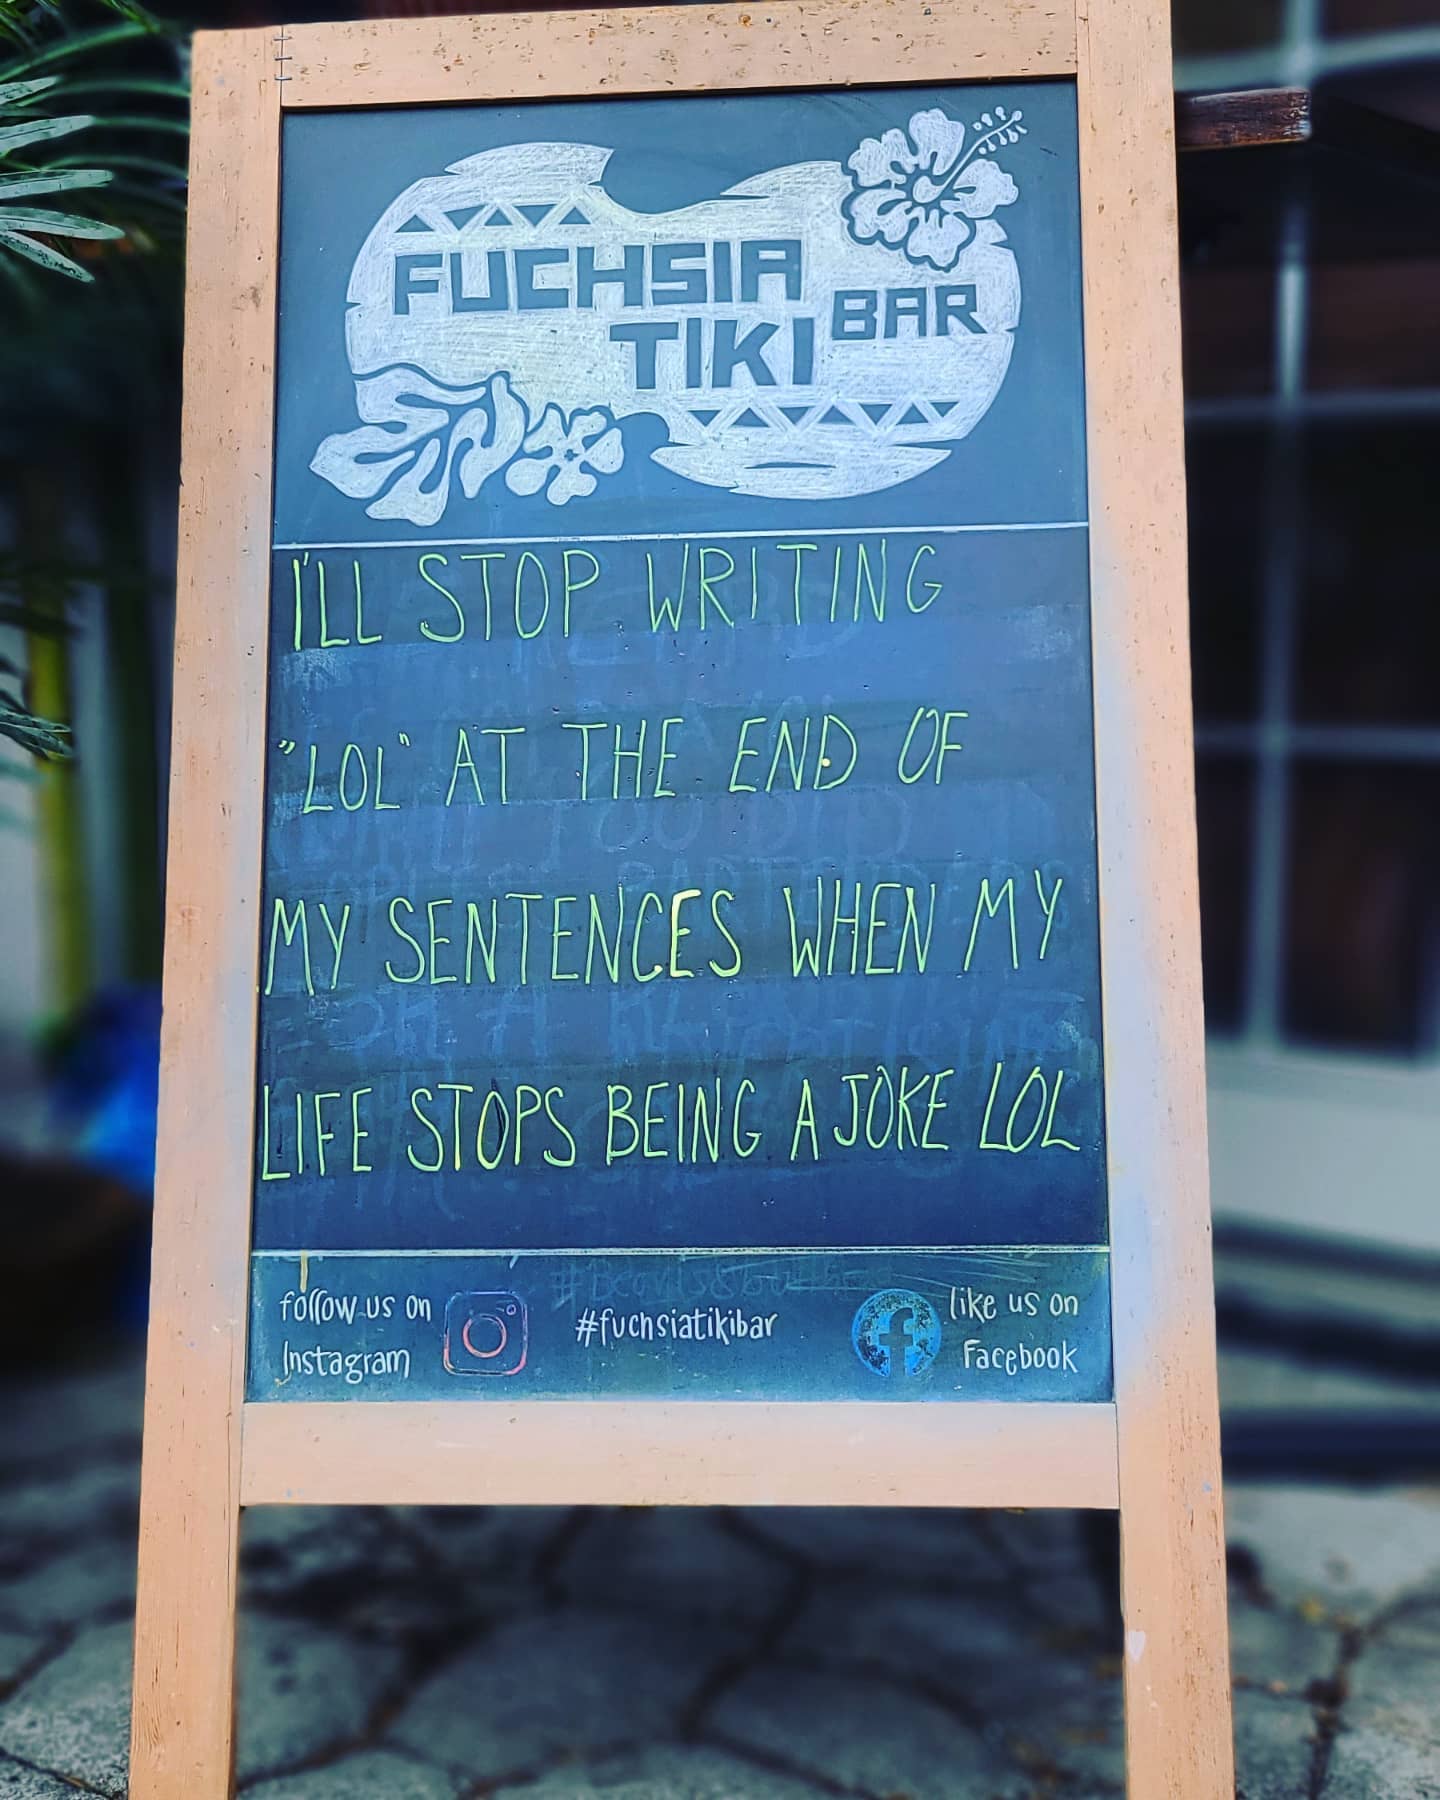 FUCHSIA
TIKI BAR
I'LL STOP WRITING
"LOL" AT THE END OF
MY SENTENCES WHEN MY
LIFE STOPS BEING A JOKE LOL
follow us on
Instagram
#fuchsiatikibar
like us on
Facebook